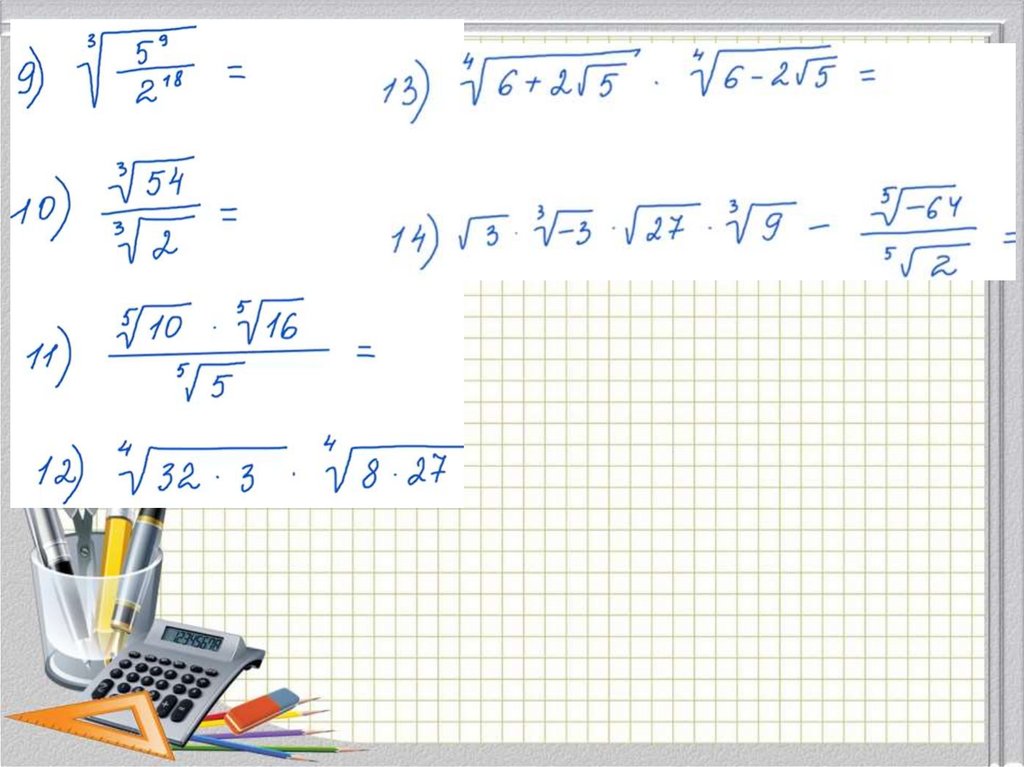 9) ∛(5⁹/2¹⁸) =
10) ∛54/∛2 =
11) (⁵√10 · ⁵√16)/⁵√5 =
12) ⁴√(32 · 3) · ⁴√(8 · 27)
13) ⁴√(6 + 2√5) · ⁴√(6 - 2√5) =
14) √3 · ∛-3 · √27 · ∛9 - ⁵√-64/⁵√2 =
12345678